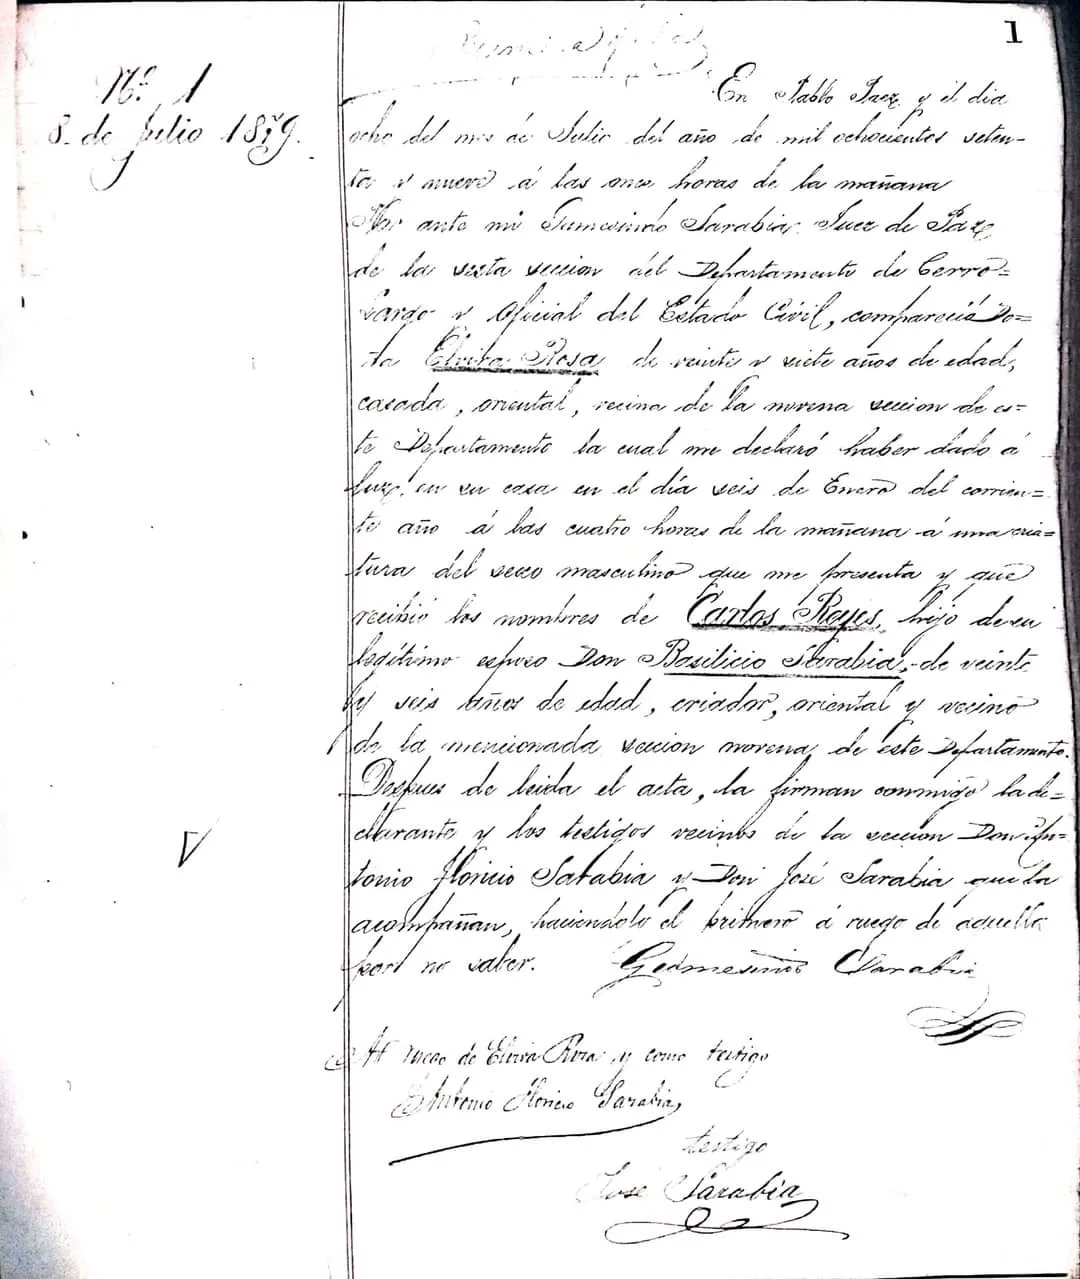 1
Nº 1
8 de Julio 1879.
En Pablo Paez y el dia
ocho del mes de Julio del año de mil ochocientos seten-
ta y nueve á las once horas de la mañana
Por ante mi Gumesindo Sarabia Juez de Paz
de la sexta seccion del Departamento de Cerro=
Largo y Oficial del Estado Civil, compareció Do=
ña Elvira Rosa de veinte y siete años de edad,
casada, oriental, vecina de la novena seccion de es=
te Departamento la cual me declaró haber dado á
luz, en su casa en el día seis de Enero del corrien=
te año á las cuatro horas de la mañana á una cria=
tura del secso masculino que me presenta y que
recibió los nombres de Carlos Reyes, hijo de su
legítimo esposo Don Basilicio Sarabia, de veinte
y seis años de edad, criador, oriental y vecino
de la mencionada seccion novena de este Departamento.
Despues de leida el acta, la firman conmigo la de=
clarante y los testigos vecinos de la seccion Don An=
tonio Floricio Sarabia y Don José Sarabia que la
acompañan, haciendolo el primero á ruego de aquella
por no saber. Gedmesindo Sarabia
A ruego de Elvira Rosa y como testigo
Antonio Floricio Sarabia
testigo
José Sarabia